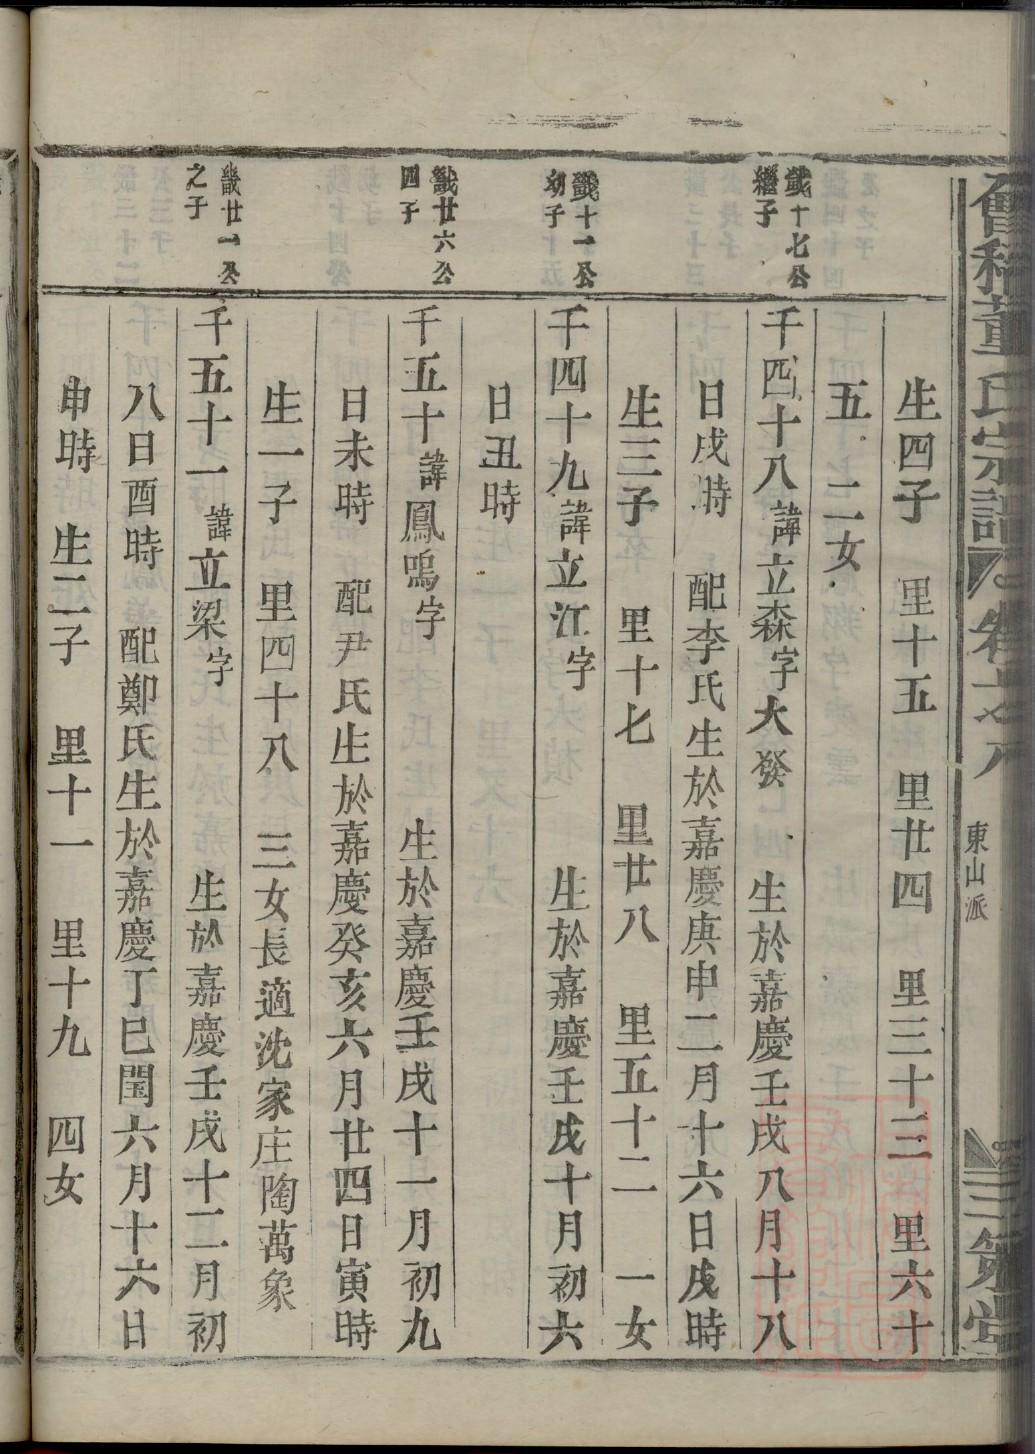 會稽董氏宗譜 卷之八 東山派 三策堂
生四子 里十五 里廿四 里三十三 里六十
五 二女
畿十七公
繼子
千四十八諱立森字大發 生於嘉慶壬戌八月十八
日戌時 配李氏生於嘉慶庚申二月十六日戌時
生三子 里十七 里廿八 里五十二 一女
畿十一公
幼子
千四十九諱立江字 生於嘉慶壬戌十月初六
日丑時
畿廿六公
四子
千五十諱鳳鳴字 生於嘉慶壬戌十一月初九
日未時 配尹氏生於嘉慶癸亥六月廿四日寅時
生一子 里四十八 三女長適沈家庄陶萬象
畿廿一公
之子
千五十一諱立梁字 生於嘉慶壬戌十二月初
八日酉時 配鄭氏生於嘉慶丁巳閏六月十六日
申時 生二子 里十一 里十九 四女